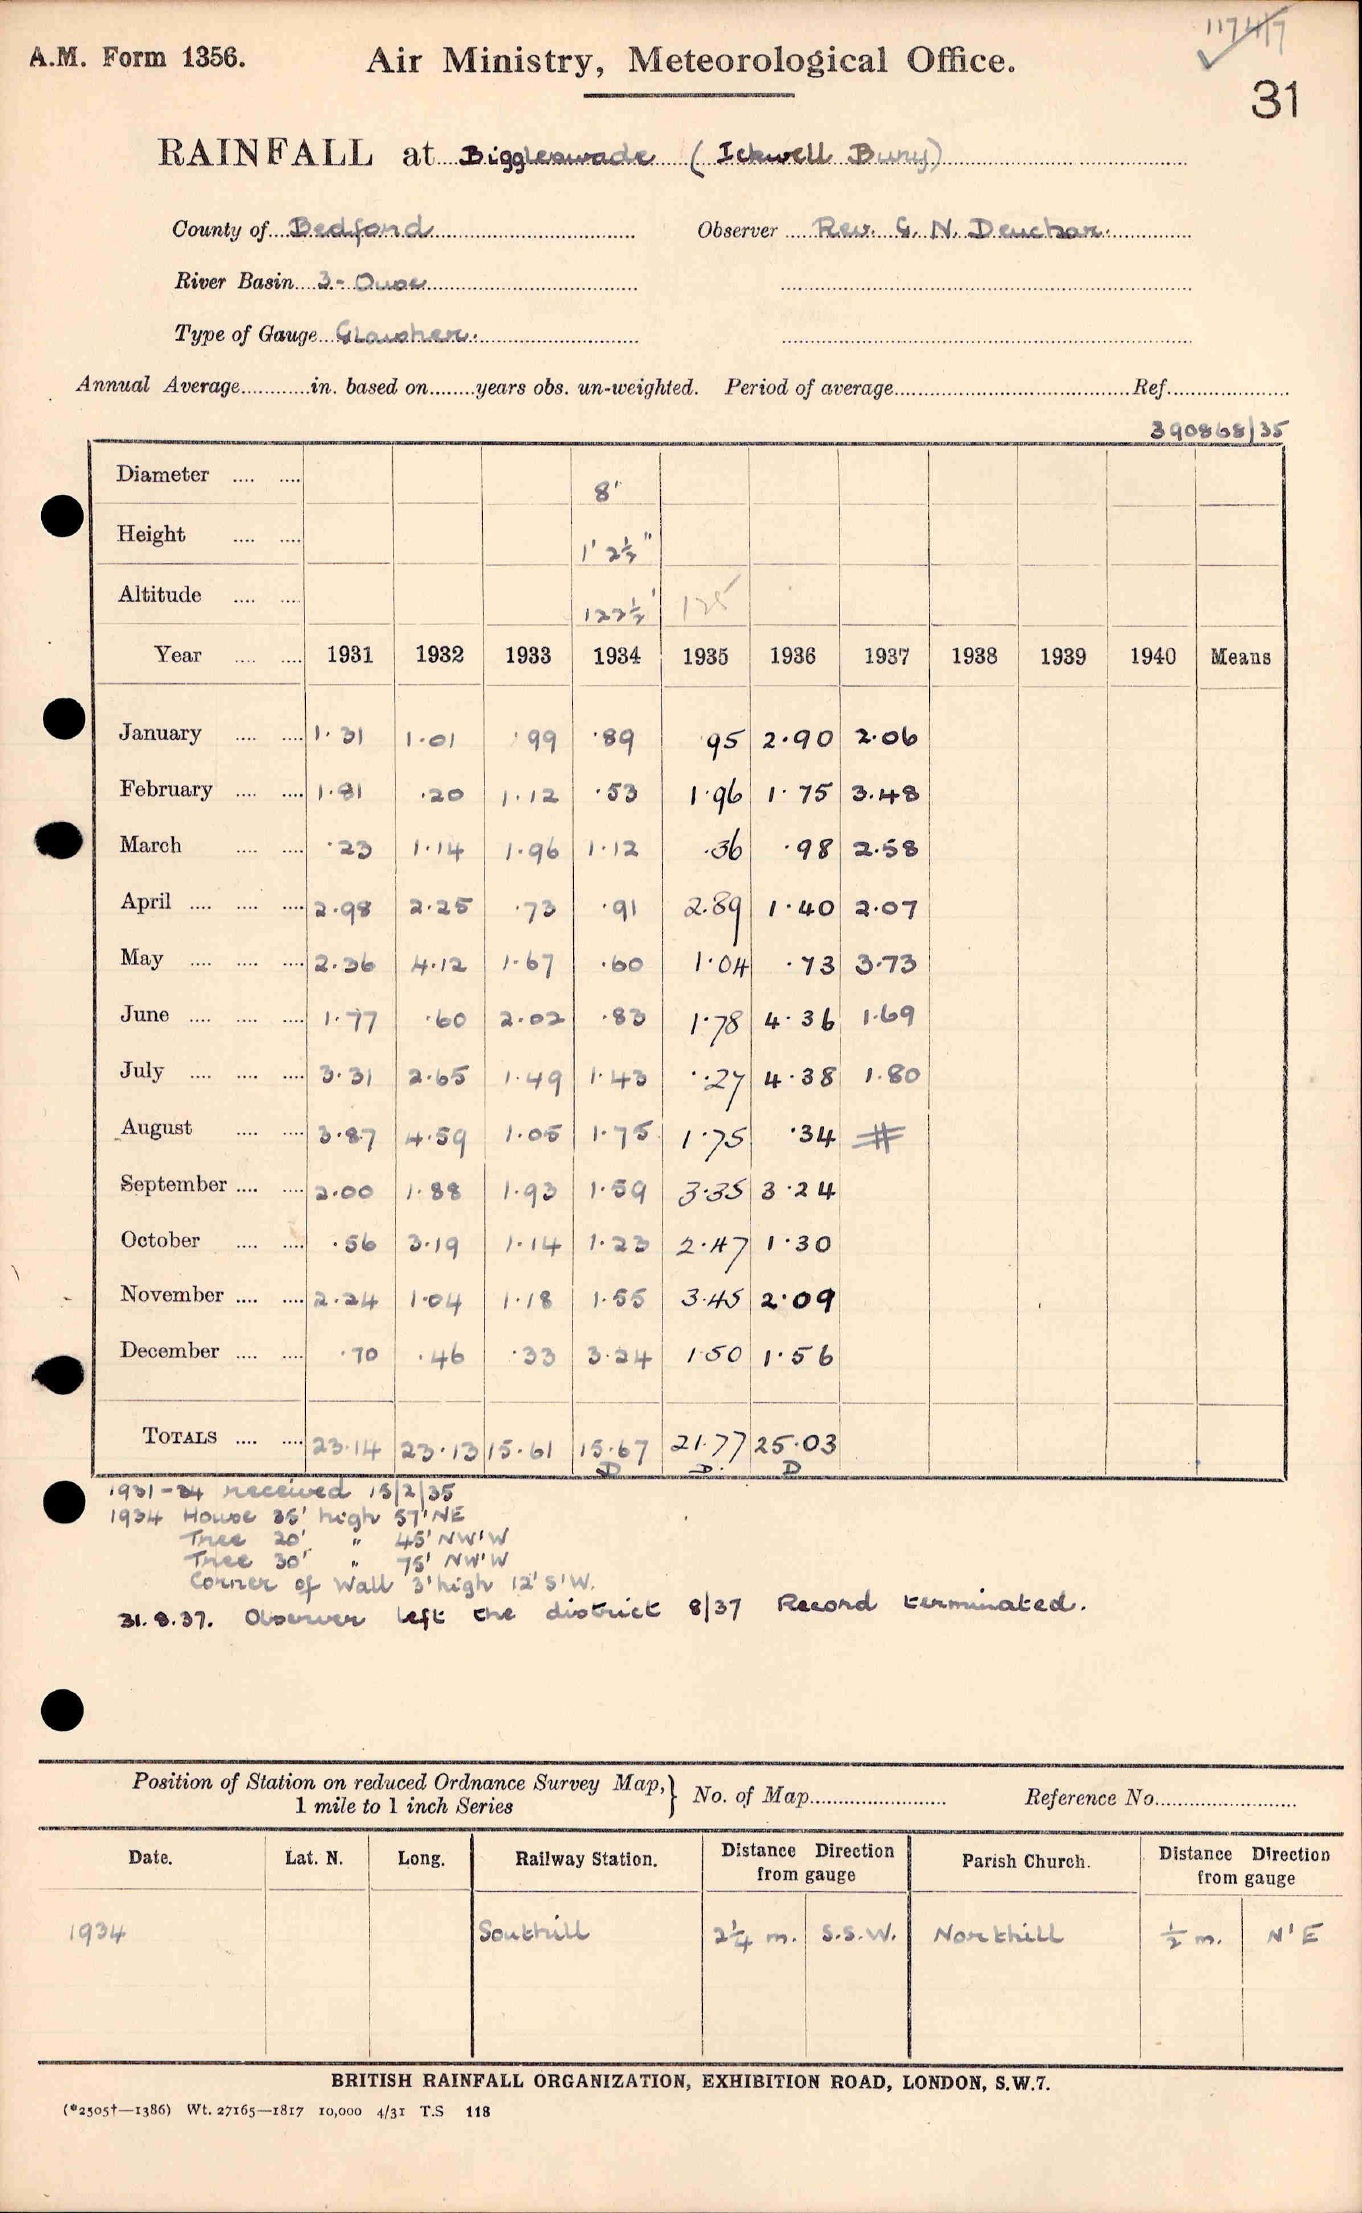 1174/7
A.M. Form 1356. Air Ministry, Meteorological Office.
31
RAINFALL at Biggleswade (Ickwell Bury)
County of Bedford Observer Rev. G. N. Deuchar.
River Basin 3 - Ouse
Type of Gauge Glaisher.
Annual Average in. based on years obs. un-weighted. Period of average Ref.
390868/35
Diameter 8"
Height 1' 2½"
Altitude 122½' 125
Year 1931 1932 1933 1934 1935 1936 1937 1938 1939 1940 Means
January 1.31 1.01 .99 .89 .95 2.90 2.06
February 1.81 .20 1.12 .53 1.96 1.75 3.48
March .23 1.14 1.96 1.12 .36 .98 2.58
April 2.98 2.25 .73 .91 2.89 1.40 2.07
May 2.36 4.12 1.67 .60 1.04 .73 3.73
June 1.77 .60 2.02 .83 1.78 4.36 1.69
July 3.31 2.65 1.49 1.43 .27 4.38 1.80
August 3.87 4.59 1.05 1.75 1.75 .34 #
September 2.00 1.88 1.93 1.59 3.35 3.24
October .56 3.19 1.14 1.23 2.47 1.30
November 2.24 1.04 1.18 1.55 3.45 2.09
December .70 .46 .33 3.24 1.50 1.56
TOTALS 23.14 23.13 15.61 15.67 21.77 25.03
D D. D
1931-34 received 15/2/35
1934 House 35' high 57' NE
Tree 20' " 45' NW'W
Tree 30' " 75' NW'W
Corner of Wall 3' high 12' S'W.
31.8.37. Observer left the district 8/37 Record terminated.
Position of Station on reduced Ordnance Survey Map, 1 mile to 1 inch Series } No. of Map Reference No.
Date. Lat. N. Long. Railway Station. Distance Direction from gauge Parish Church. Distance Direction from gauge
1934 Southill 2¼ m. S.S.W. Northill ½ m. N'E
BRITISH RAINFALL ORGANIZATION, EXHIBITION ROAD, LONDON, S.W.7.
(*2505†—1386) Wt. 27165—1817 10,000 4/31 T.S 118